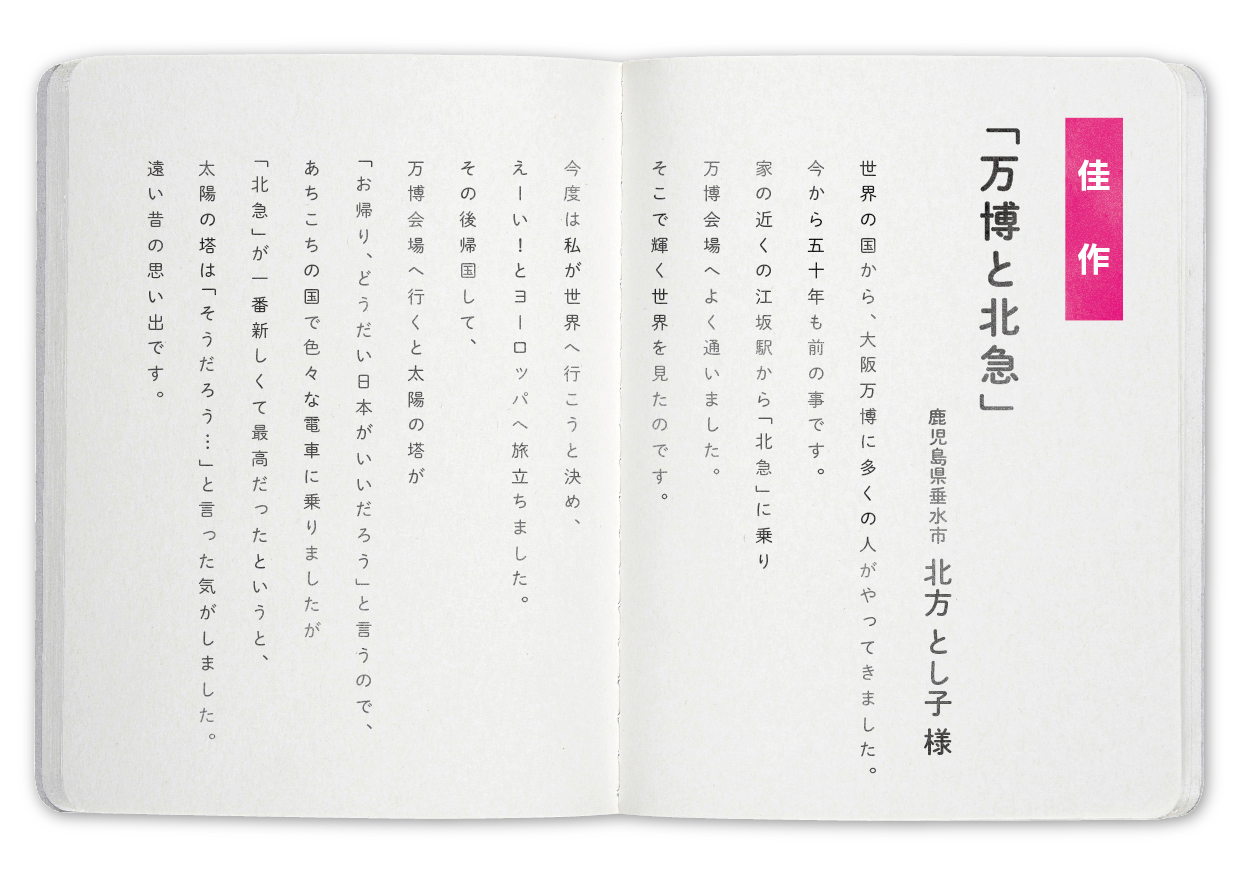 佳作
「万博と北急」
鹿児島県垂水市 北方 とし子 様
世界の国から、大阪万博に多くの人がやってきました。
今から五十年も前の事です。
家の近くの江坂駅から「北急」に乗り
万博会場へよく通いました。
そこで輝く世界を見たのです。
今度は私が世界へ行こうと決め、
えーい！とヨーロッパへ旅立ちました。
その後帰国して、
万博会場へ行くと太陽の塔が
「お帰り、どうだい日本がいいだろう」と言うので、
あちこちの国で色々な電車に乗りましたが
「北急」が一番新しくて最高だったというと、
太陽の塔は「そうだろう…」と言った気がしました。
遠い昔の思い出です。